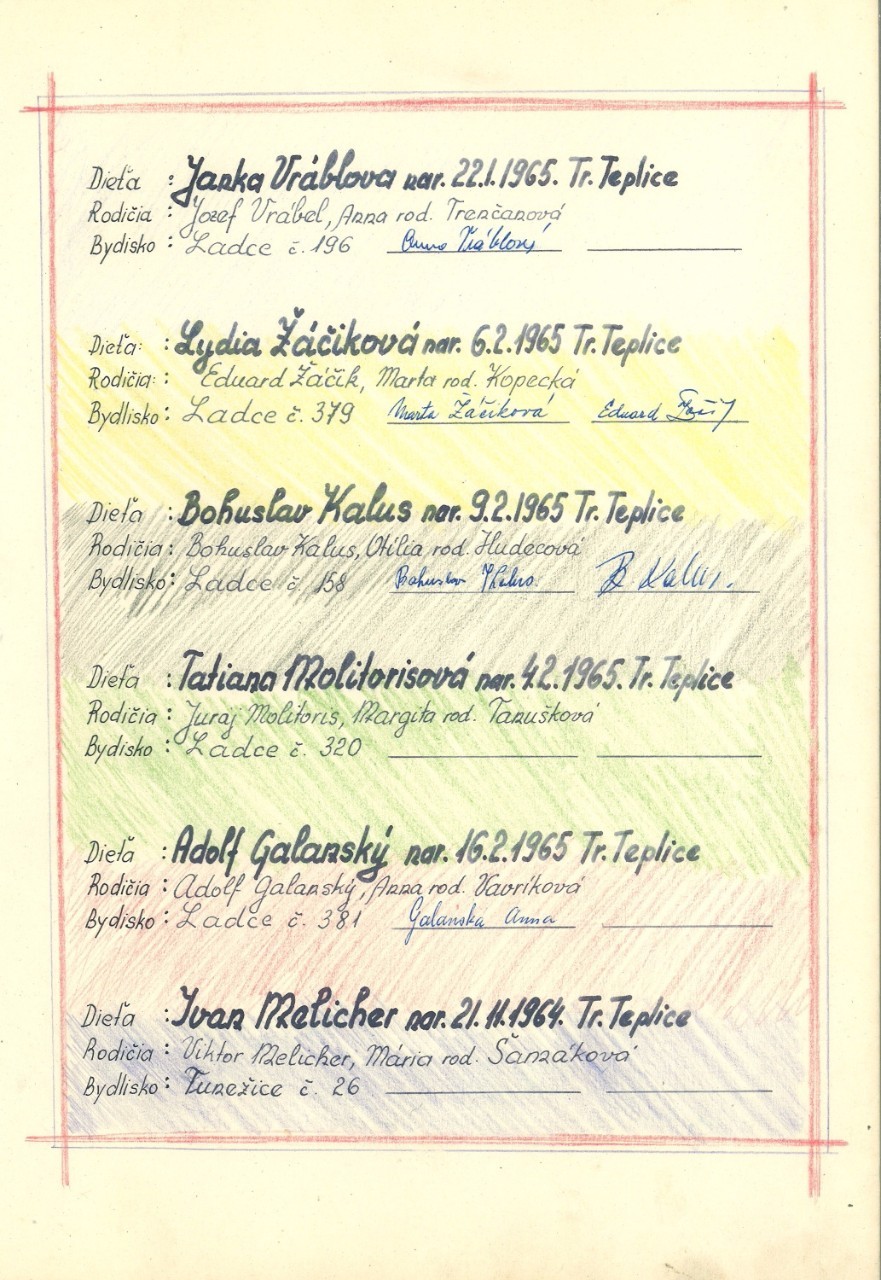 Dieťa : Janka Vráblova nar. 22.1.1965. Tr. Teplice
Rodičia : Jozef Vrábel, Anna rod. Trenčanová
Bydisko : Ladce č. 196 Anna Vráblová
Dieťa: : Lydia Žáčiková nar. 6.2.1965 Tr. Teplice
Rodičia: : Eduard Žáčik, Marta rod. Kopecká
Bydlisko : Ladce č. 379 Marta Žáčiková Eduard
Dieťa : Bohuslav Kalus nar. 9.2.1965 Tr. Teplice
Rodičia : Bohuslav Kalus, Otília rod. Hudecová
Bydlisko : Ladce č. 158 Bohuslav Kalus B. Kalus.
Dieťa : Tatiana Molitorisová nar. 4.2.1965. Tr. Teplice
Rodičia : Juraj Molitoris, Margita rod. Tanušková
Bydisko : Ladce č. 320
Dieťa : Adolf Galanský nar. 16.2.1965 Tr. Teplice
Rodičia : Adolf Galanský, Anna rod. Vavríková
Bydisko : Ladce č. 381 Galánska Anna
Dieťa : Ivan Melicher nar. 21.11.1964. Tr. Teplice
Rodičia : Viktor Melicher, Mária rod. Šanzáková
Bydlisko : Tunežice č. 26